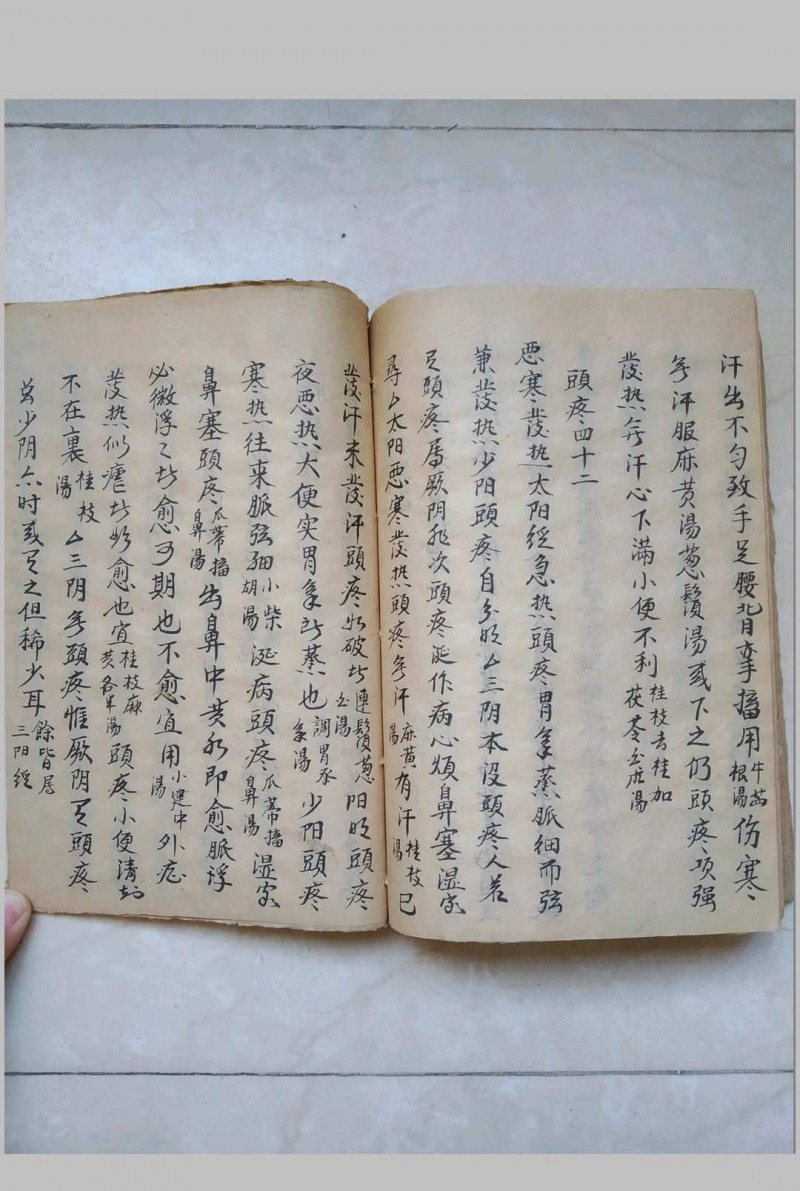 汗出不匀致手足腰背挛搐用牛蒡根湯伤寒〻
無汗服麻黄湯葱鬚湯或下之仍頭疼项强
發热無汗心下满小便不利桂枝去桂加茯苓白朮湯
頭疼四十二
恶寒發热太阳经急热頭疼胃氣蒸脈细而弦
兼發热少阳頭疼自分明△三阴本没頭疼人若
有頭疼属厥阴非次頭疼涎作病心烦鼻塞湿家
尋△太阳恶寒發热頭疼無汗麻黄湯有汗桂枝湯已
發汗未發汗頭疼如破者連鬚葱白湯阳明頭疼
夜恶热大便实胃氣所蒸也調胃承氣湯少阳頭疼
寒热往来脈弦细小柴胡湯涎病頭疼瓜蒂搐鼻湯湿家
鼻塞頭疼瓜蒂搐鼻湯出鼻中黄水即愈脈浮
必微浮〻者愈可期也不愈宜用小建中湯外症
發热似瘧者欲愈也宜桂枝麻黄各半湯頭疼小便清知
不在裏桂枝湯△三阴無頭疼惟厥阴有頭疼
若少阴亦时或有之但稀少耳餘皆属三阳经